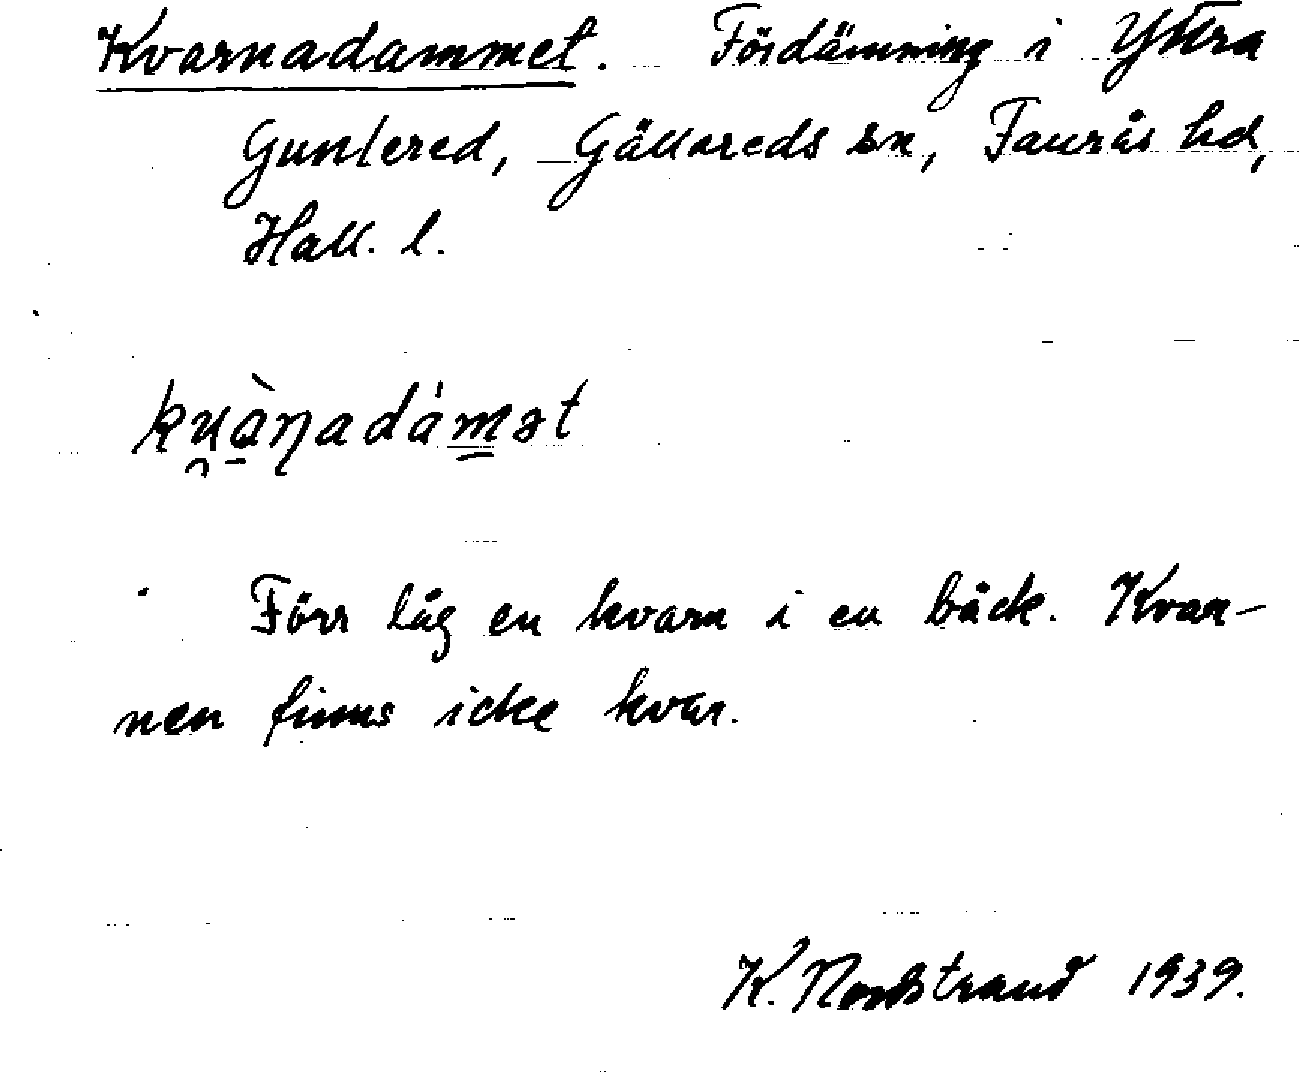 Kvarnadammet. Fördämning i Yttra
Guntered, Gällareds sn, Faurås hd,
Hall. l.
ku̯ànadámət
Förr låg en kvarn i en bäck. Kvar-
nen finns icke kvar.
K. Nordstrand 1939.